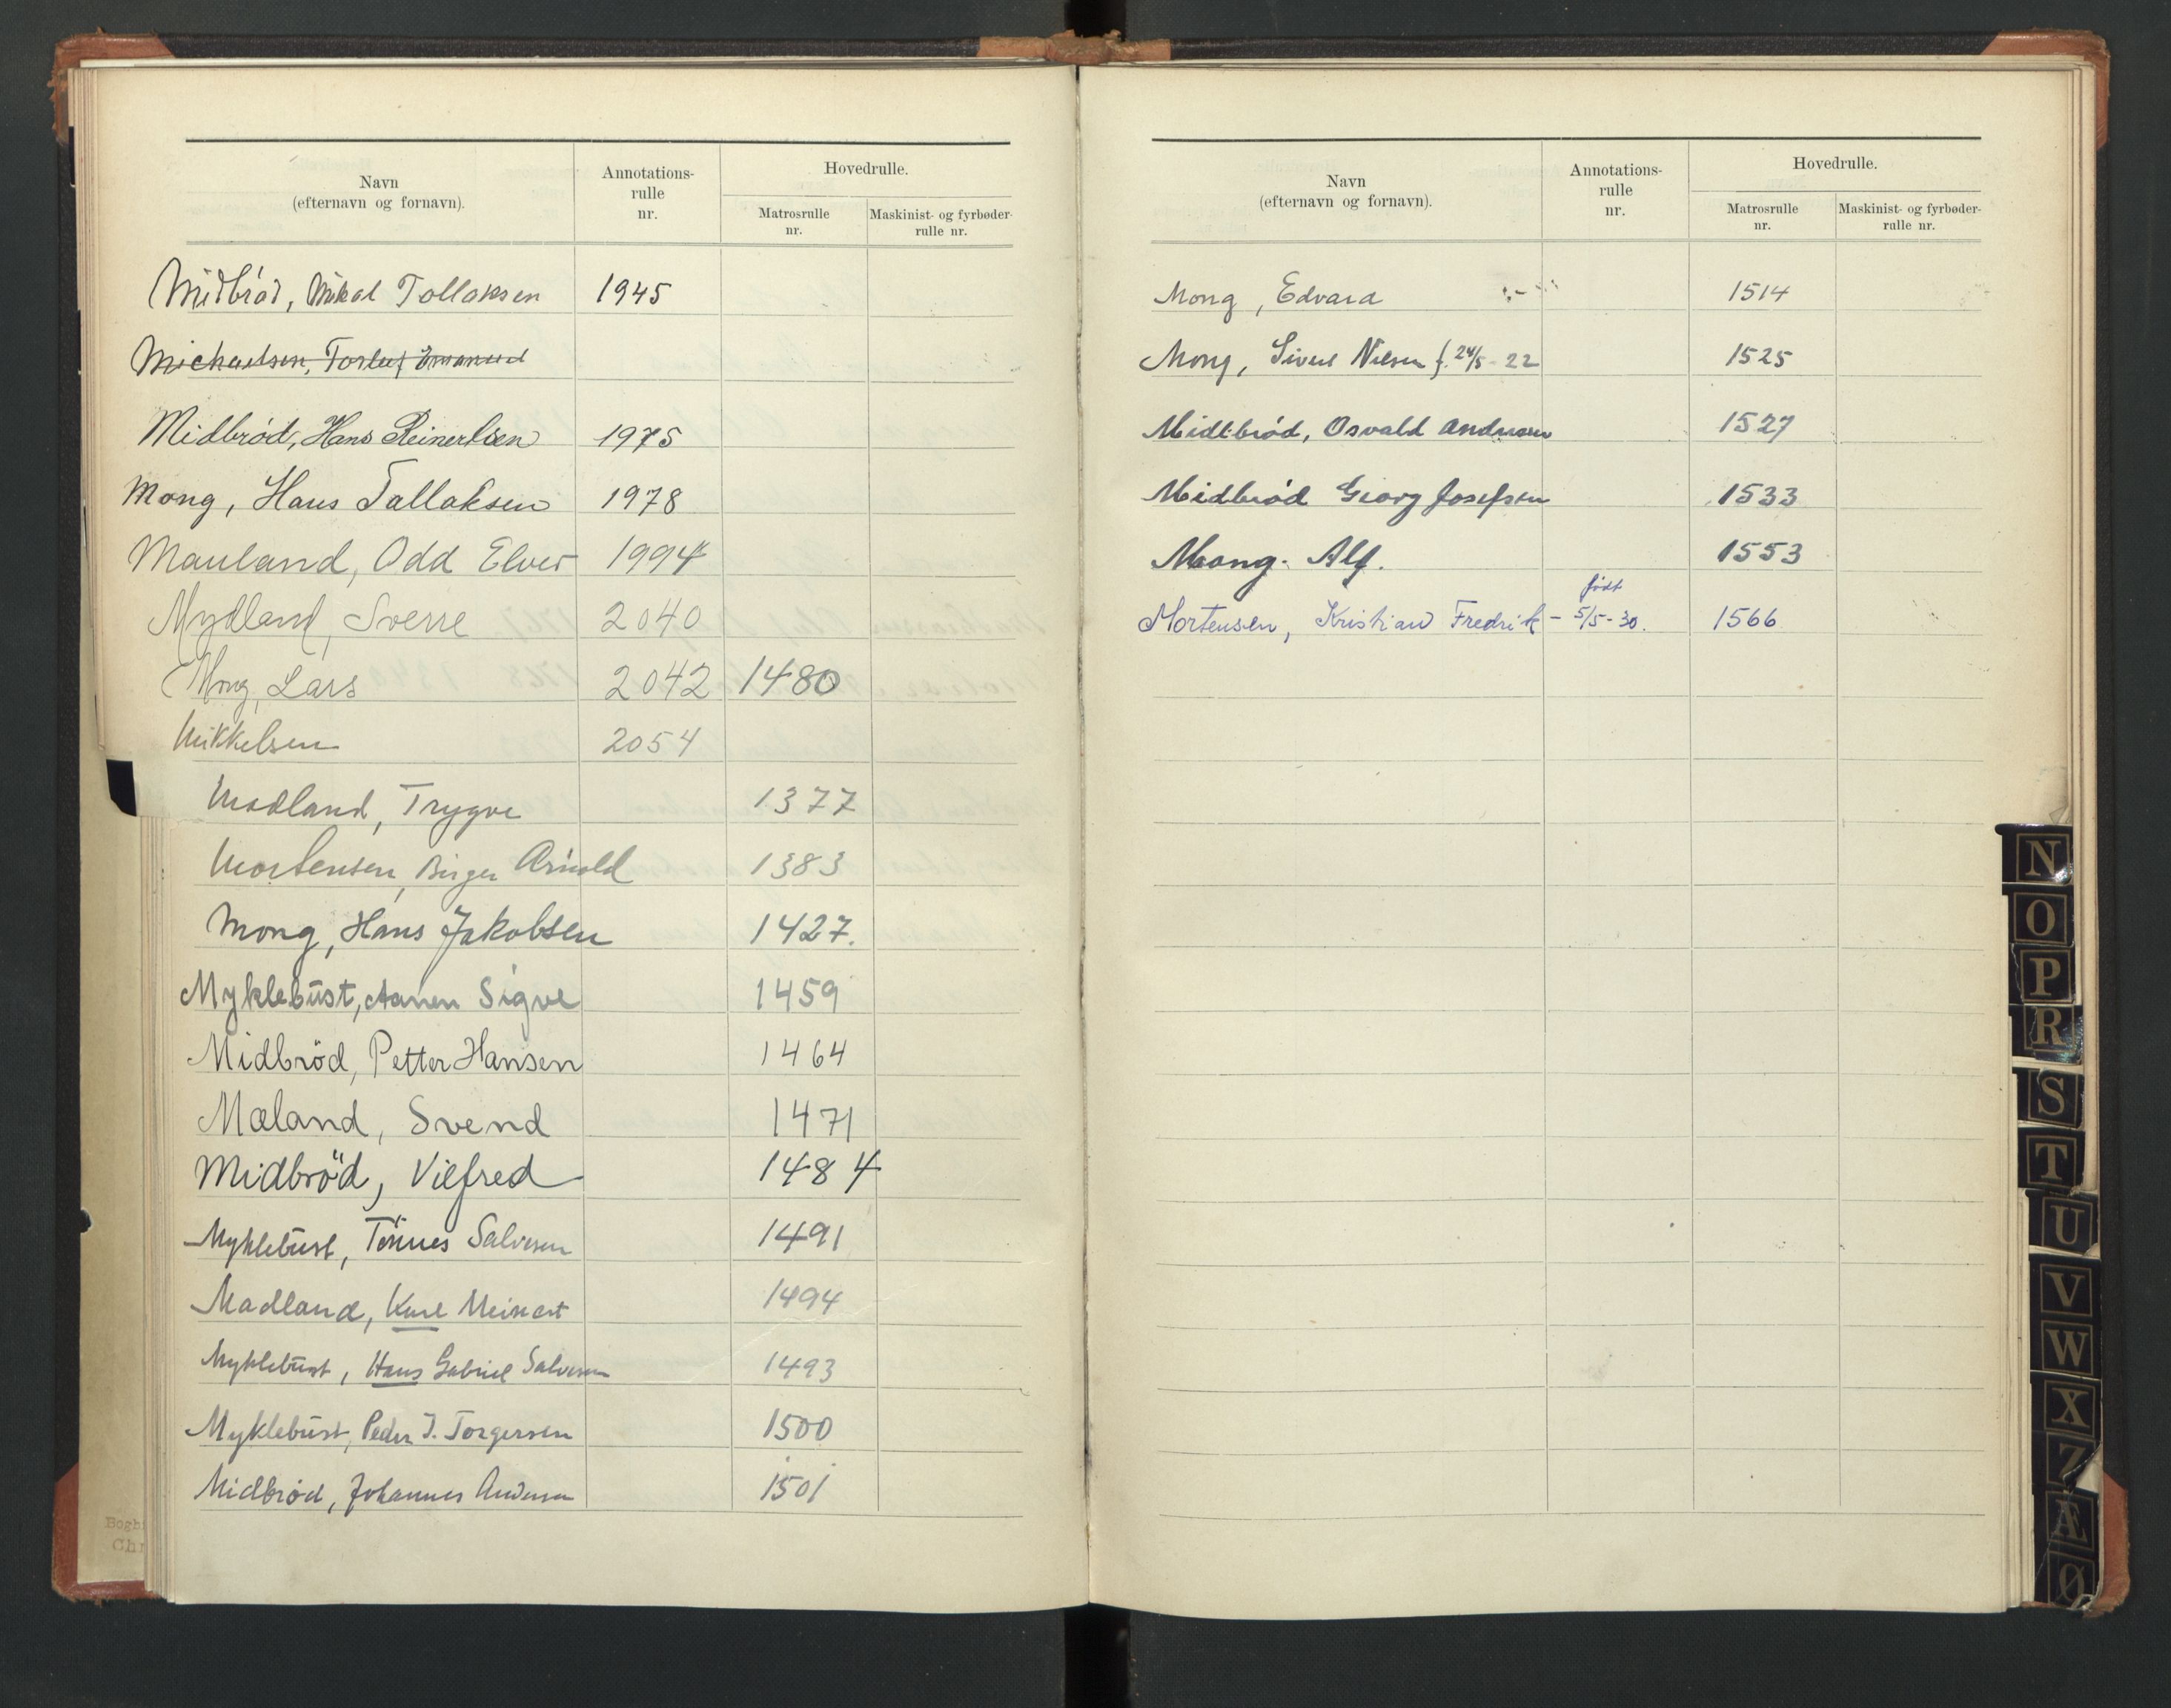 Navn
(efternavn og fornavn).
Annotations-
rulle
nr.
Hovedrulle.
Matrosrulle
nr.
Maskinist- og fyrbøder-
rulle nr.
Midbrød, Mikal Tollaksen 1945
Michaelsen, Torleif Emanuel
Midbrød, Hans Reinertsen 1975
Mong, Hans Tallaksen 1978
Mauland, Odd Elver 1994
Mydland, Sverre 2040
Mong, Lars 2042 1480
Mikkelsen 2054
Madland, Trygve 1377
Mortensen, Birger Arnold 1383
Mong, Hans Jakobsen 1427.
Myklebust, Aanen Sigve 1459
Midbrød, Petter Hansen 1464
Mæland, Svend 1471
Midbrød, Vilfred 1484
Myklebust, Tønnes Salvesen 1491
Madland, Karl Meinert 1494
Myklebust, Hans Gabriel Salvesen 1493
Myklebust, Peder T. Torgersen 1500
Midbrød, Johannes Andersen 1501
Bogb
Chr
Navn
(efternavn og fornavn).
Annotations-
rulle
nr.
Hovedrulle.
Matrosrulle
nr.
Maskinist- og fyrbøder-
rulle nr.
Mong, Edvard 1514
Mong, Sivert Nilsen f. 24/5-22 1525
Midtbrød, Osvald Andreasen 1527
Midbrød Georg Josefsen 1533
Mong. Alf. 1553
født
Mortensen, Kristian Fredrik - 5/5-30. 1566
N
O
P
R
S
T
U
V
W
X
Z
Æ
Ø